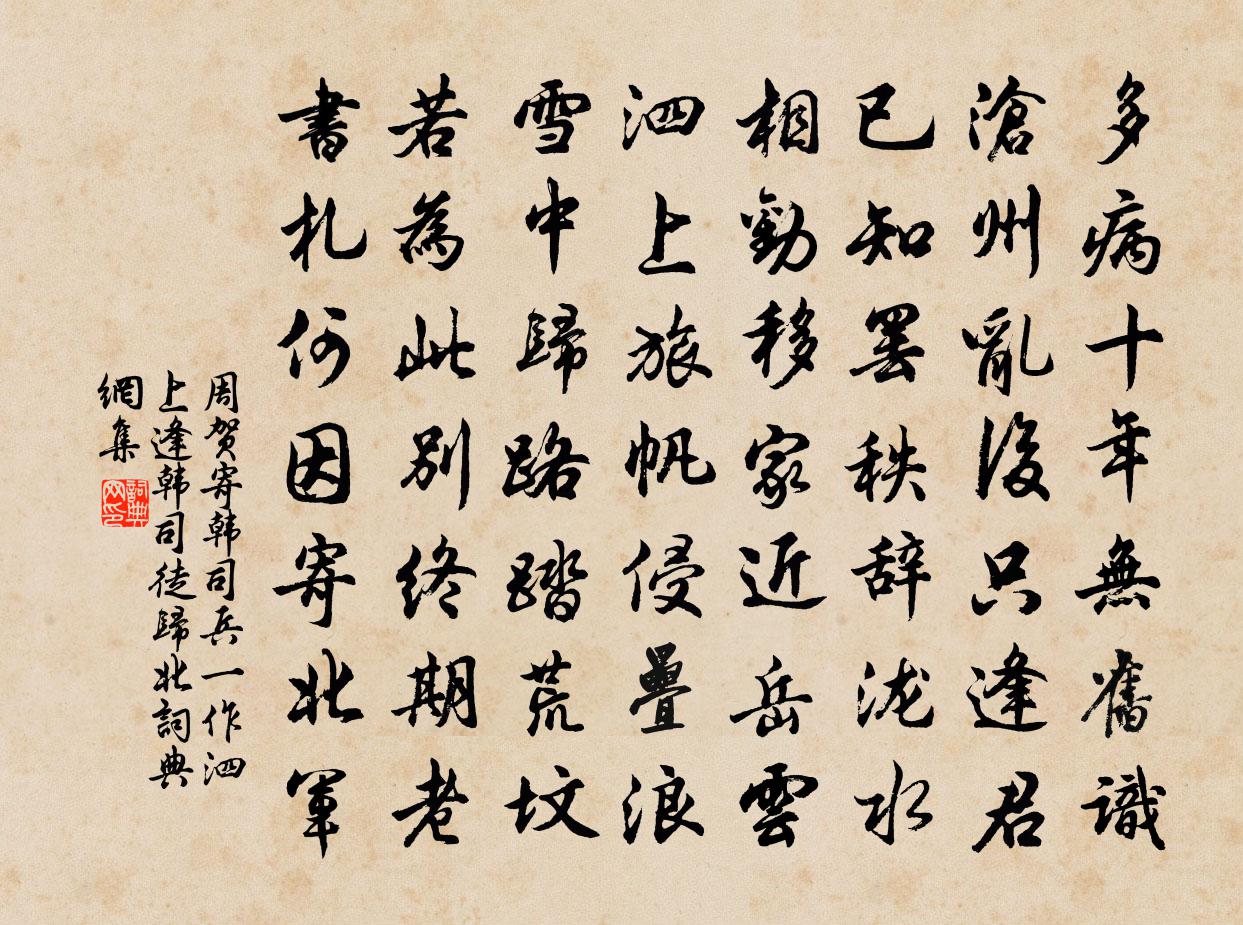 多病十年無舊識
滄州亂後只逢君
已知罢秩辞泷水
相勸移家近岳雲
泗上旅帆侵疊浪
雪中歸路踏荒坟
若為此别終期老
書札何因寄北軍
周贺寄韩司兵一作泗
上逢韩司徒歸北詞典
網集
詞典网印